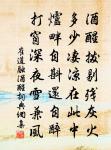 酒醒撥剔殘灰火
多少淒涼在此中
爐畔自斟還自醉
打窗深夜雪兼風
崔道融酒醒